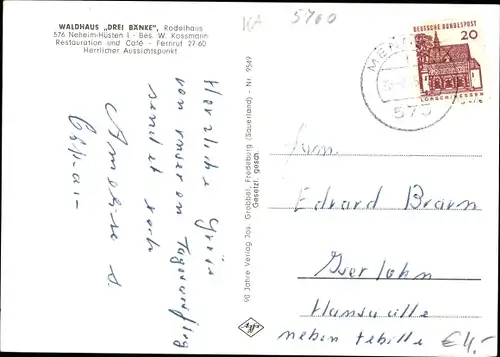 WALDHAUS „DREI BÄNKE", Rodelhaus
576 Neheim-Hüsten I - Bes. W. Kossmann
Restauration und Café - Fernruf 27 60
Herrlicher Aussichtspunkt
KA
5760
Herzliche Grüße
von unserem Tagesausflug
sendet euch
90 Jahre Verlag Jos. Grobbel, Fredeburg (Sauerland) - Nr. 9549
Gesetzl. gesch.
Agfa
MEN
575
DEUTSCHE BUNDESPOST
20
LORSCH/HESSEN
Fam.
Eduard Braun
Iserlohn
Hansaville
neben Tebille
€4,-